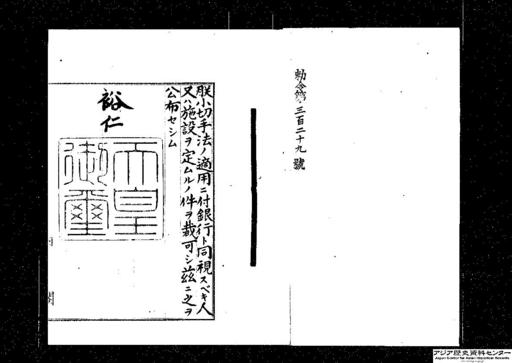 勅令第三百二十九號
朕小切手法ノ適用ニ付銀行ト同視スベキ人
又ハ施設ヲ定ムルノ件ヲ裁可シ茲ニ之ヲ
公布セシム
裕仁
天皇
御璽
アジア歴史資料センター
Japan Center for Asian Historical Records